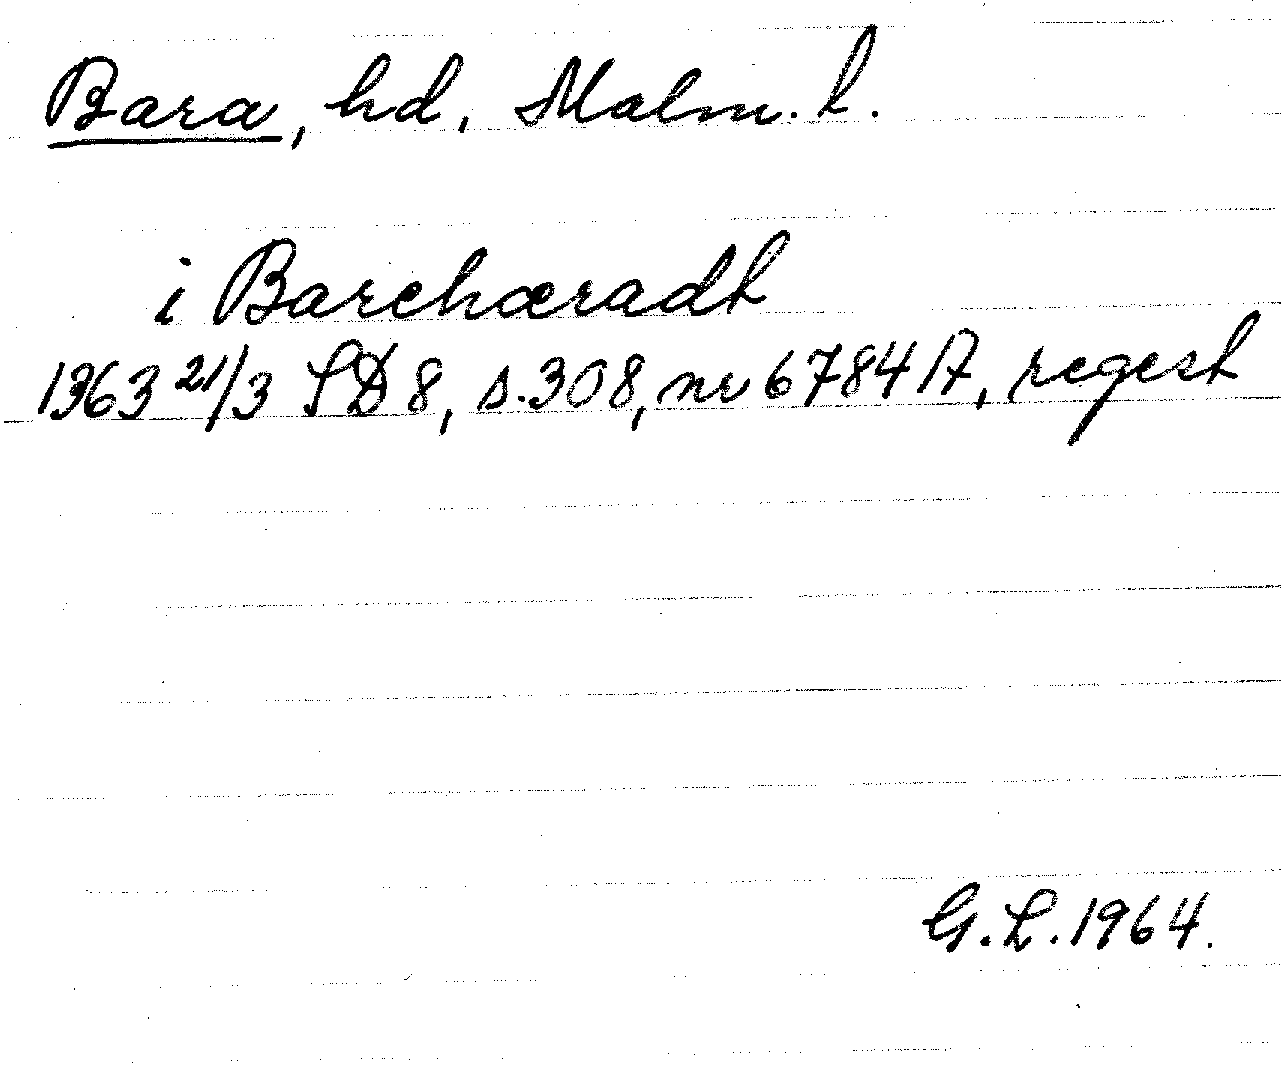 Bara, hd, Malm. l.
i Barehæradt
1363 21/3 SD 8, s. 308, nr 6784 A, regest
G. L. 1964.